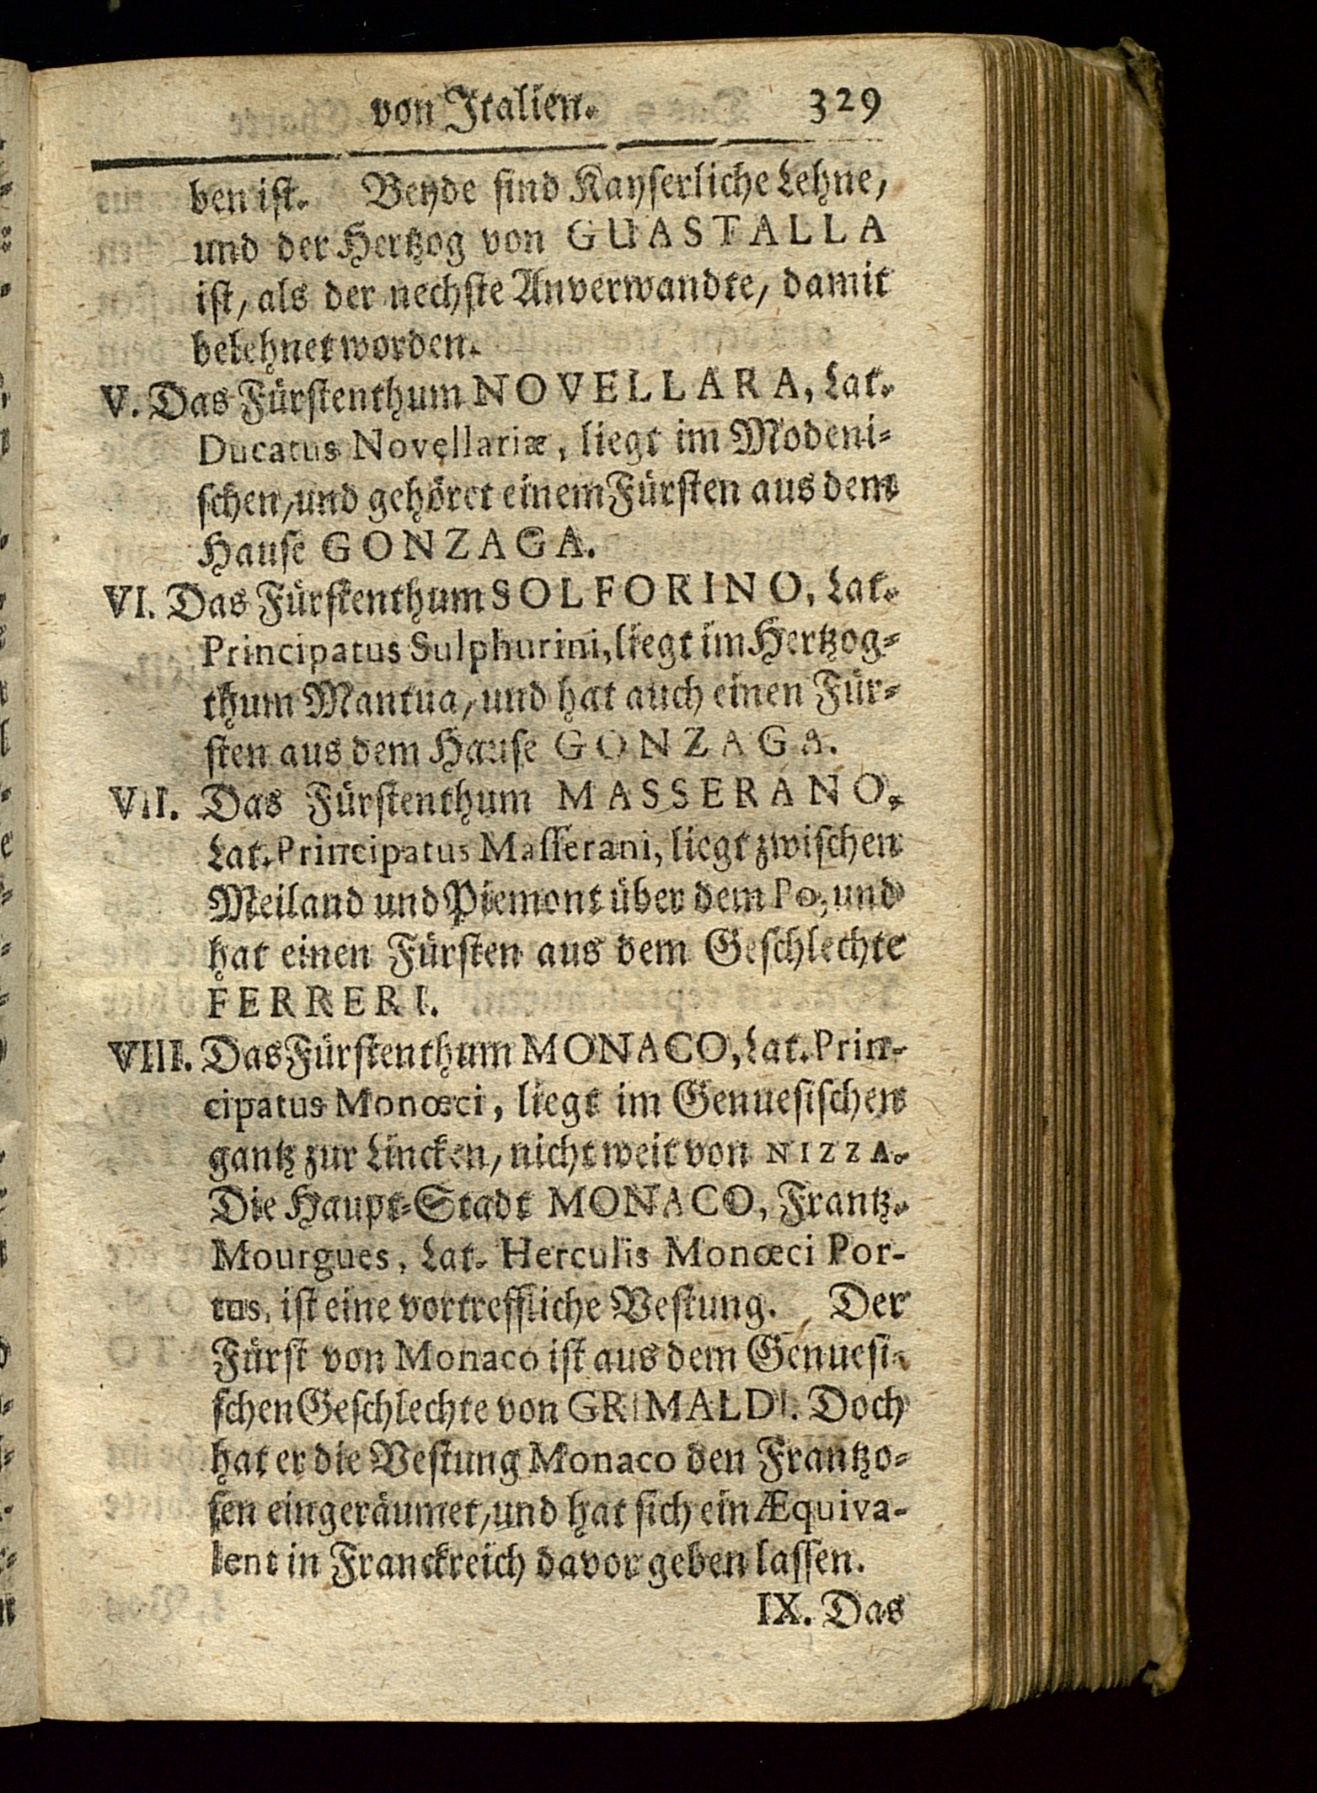 von Italien. 329
ben ist. Beyde sind Kayserliche Lehne,
und der Hertzog von GUASTALLA
ist, als der nechste Anverwandte, damit
belehnet worden.
V. Das Fürstenthum NOVELLARA, Lat.
Ducatus Novellariæ, liegt im Modeni-
schen, und gehöret einem Fürsten aus dem
Hause GONZAGA.
VI. Das Fürstenthum SOLFORINO, Lat.
Principatus Sulphurini, liegt im Hertzog-
thum Mantua, und hat auch einen Für-
sten aus dem Hause GONZAGA.
VII. Das Fürstenthum MASSERANO,
Lat. Principatus Masserani, liegt zwischen
Meiland und Piemont über dem Po, und
hat einen Fürsten aus dem Geschlechte
FERRERI.
VIII. Das Fürstenthum MONACO, Lat. Prin-
cipatus Monœci, liegt im Genuesischen
gantz zur Lincken, nicht weit von NIZZA.
Die Haupt-Stadt MONACO, Frantz.
Mourgues, Lat. Herculis Monœci Por-
tus, ist eine vortreffliche Vestung. Der
Fürst von Monaco ist aus dem Genuesi-
schen Geschlechte von GRIMALDI. Doch
hat er die Vestung Monaco den Frantzo-
sen eingeräumet, und hat sich ein Æquiva-
lent in Franckreich davor geben lassen.
IX. Das